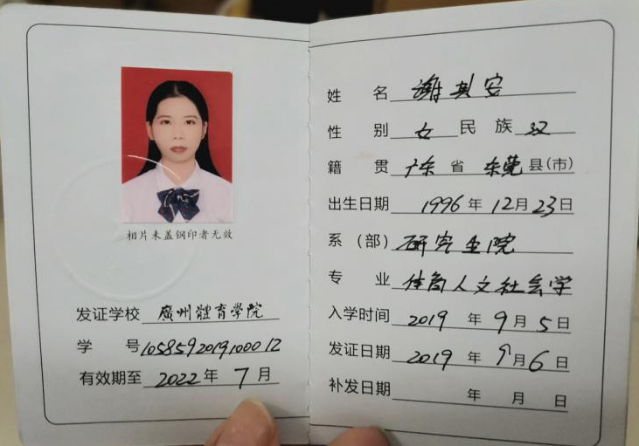 相片未盖钢印者无效
发证学校 廣州體育學院
学号 1058592019100012
有效期至 2022年7月
姓名 谢其安
性别 女 民族 汉
籍贯 广东省东莞县(市)
出生日期 1996年12月23日
系(部) 研究生院
专业 体育人文社会学
入学时间 2019年9月5日
发证日期 2019年9月6日
补发日期 年月日